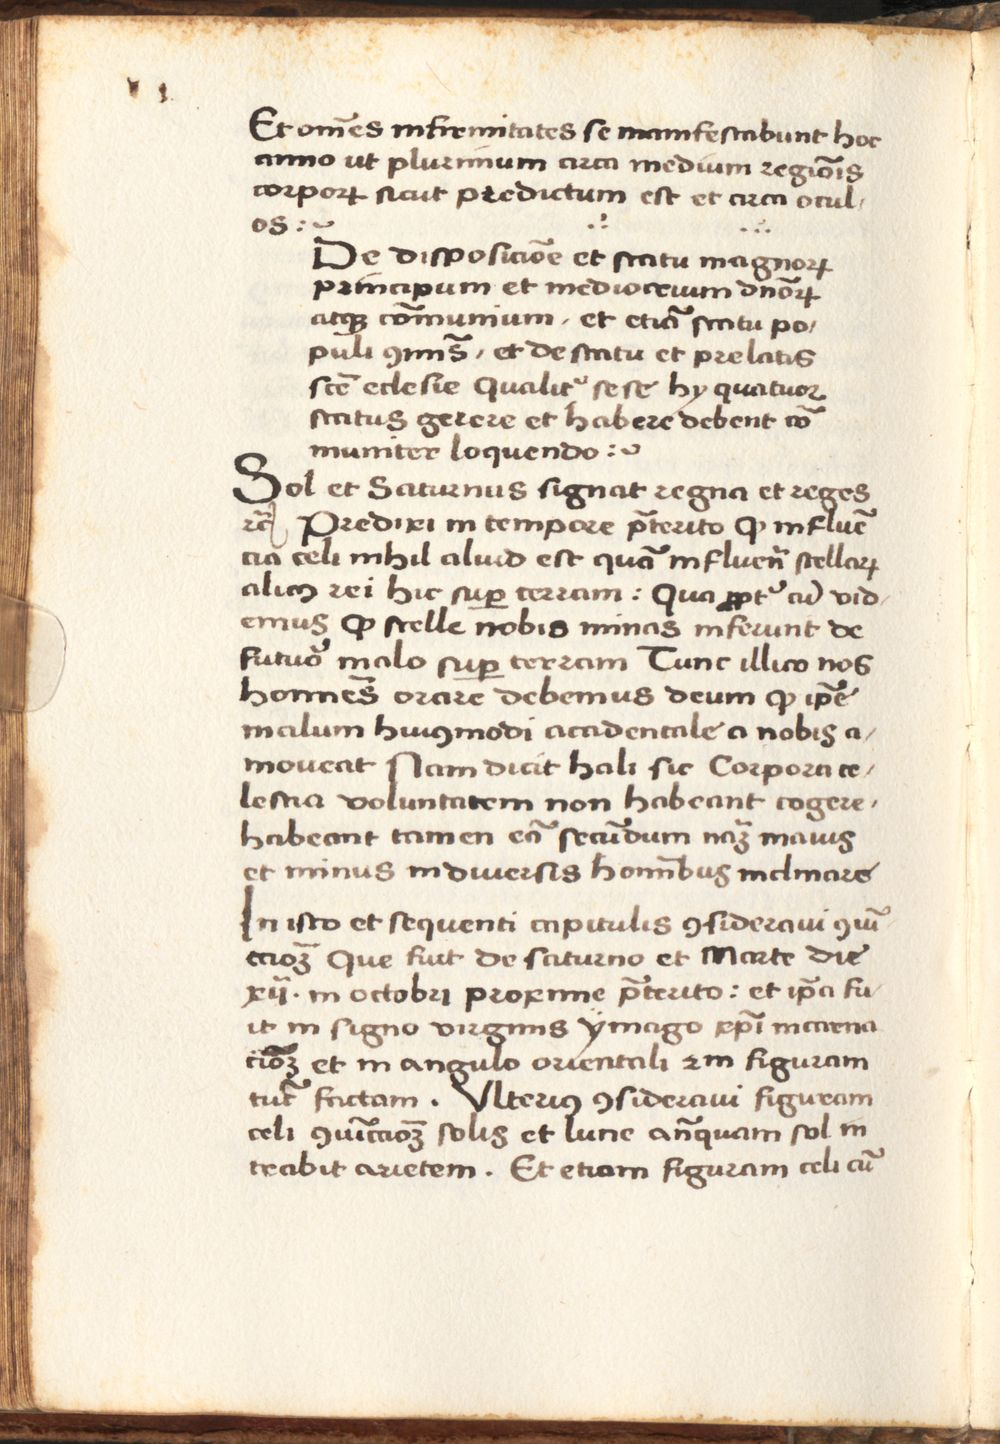 Et om̄es infirmitates se manifestabunt hoc
anno ut plurimum circa medium regiōis
corporꝝ sicut predictum est et circa ocul,
os :~
De disposiciōe et statu magnorꝝ
principum et mediocrium dn̄orꝝ
atqꝫ cōmunium, et etiā statu po,
puli ꝯmīs, et de statu et prelatis
scē eclesie Qualitꝰ sese hy quatuor
status gerere et habere debent cō
muniter loquendo :~
Sol et Saturnus signat regna et reges
rc̄ Predixi in tempore p̄terito ꝙ influē
cia celi nihil aliud est quā influen̄ stellarꝝ
alicꝰ rei hic super terram : Qua ꝓptꝰ cū vid,
emus ꝙ stelle nobis minas inferunt de
futuō malo super terram Tunc illico nos
homīes orare debemus deum ꝙ ip̄e
malum huiꝰmodi accidentale a nobis a,
moveat Nam dicit hali sic Corpora ce,
lestia voluntatem non habeant cogere,
habeant tamen eā secūdum naꝫ maius
et minus in diversis homībus inclinare
In isto et sequenti capitulis ꝯsideravi ꝯiū,
ccioꝫ Que fuit de saturno et Marte die
xij. in octobri proxime p̄terito : et ip̄a fu,
it in signo virginis ẏmago xp̄i incarna
ciōꝫ et in angulo orientali ꝛ in figuram
tūc factam . Ulteriꝰ ꝯsideravi figuram
celi ꝯiūccioꝫ solis et lune an̄quam sol in
trabit arietem . Et etiam figuram celi cū